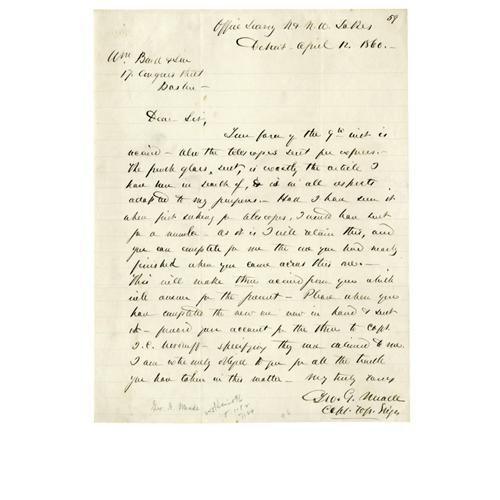 59
Office Survey N. & N.W. Lakes
Detroit April 12. 1860.—
Wm Bond & Son
17 Congress Street
Boston —
Dear Sir,
Your favor of the 9th inst is
received — also the telescopes sent per express.
The finder glass, sent, is exactly the article I
have been in search of, & is in all respects
adapted to my purposes — Had I have seen it
when first seeking for telescopes, I would have sent
for a number — as it is I will retain this, and
you can complete for me the one you had nearly
finished when you came across this one. —
This will make three received from you which
will answer for the present — Please when you
have completed the new one now in hand & sent
it — forward your account for the three to Capt.
— specifying they were delivered to me.
I am extremely obliged to you for all the trouble
you have taken in this matter — Very truly yours
Geo. G. Meade
Capt. Top. Engs
Geo. G. Meade